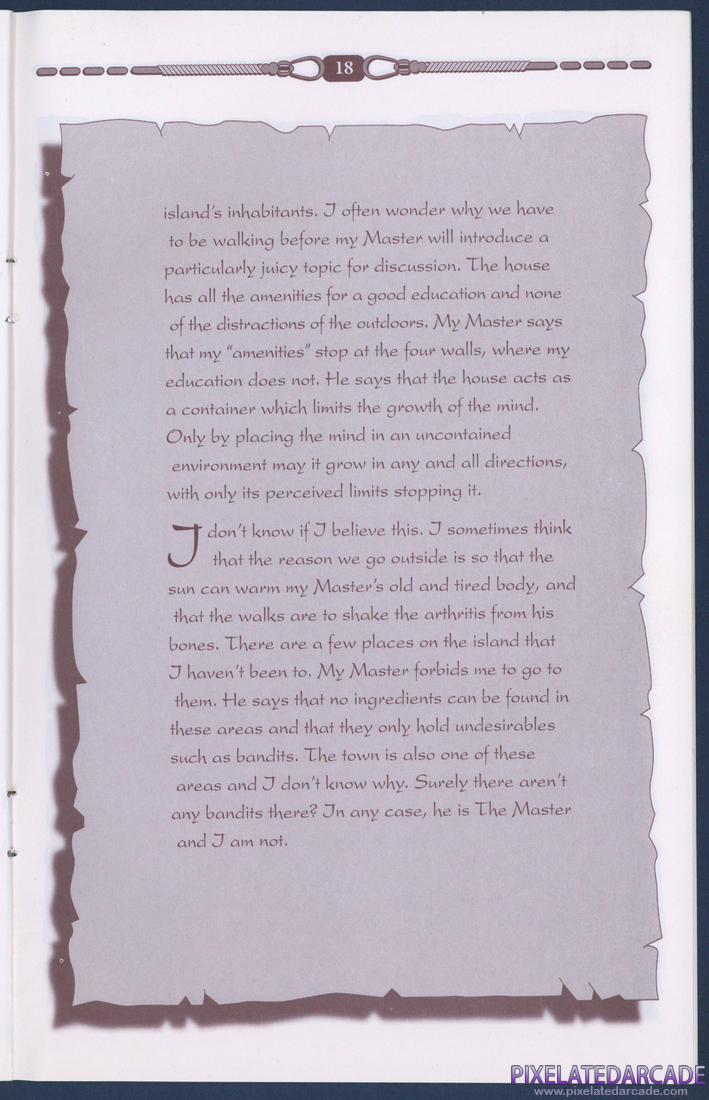 18
island's inhabitants. I often wonder why we have
to be walking before my Master will introduce a
particularly juicy topic for discussion. The house
has all the amenities for a good education and none
of the distractions of the outdoors. My Master says
that my “amenities” stop at the four walls, where my
education does not. He says that the house acts as
a container which limits the growth of the mind.
Only by placing the mind in an uncontained
environment may it grow in any and all directions,
with only its perceived limits stopping it.
I don't know if I believe this. I sometimes think
that the reason we go outside is so that the
sun can warm my Master's old and tired body, and
that the walks are to shake the arthritis from his
bones. There are a few places on the island that
I haven't been to. My Master forbids me to go to
them. He says that no ingredients can be found in
these areas and that they only hold undesirables
such as bandits. The town is also one of these
areas and I don't know why. Surely there aren't
any bandits there? In any case, he is The Master
and I am not.
PIXELATEDARCADE
www.pixelatedarcade.com